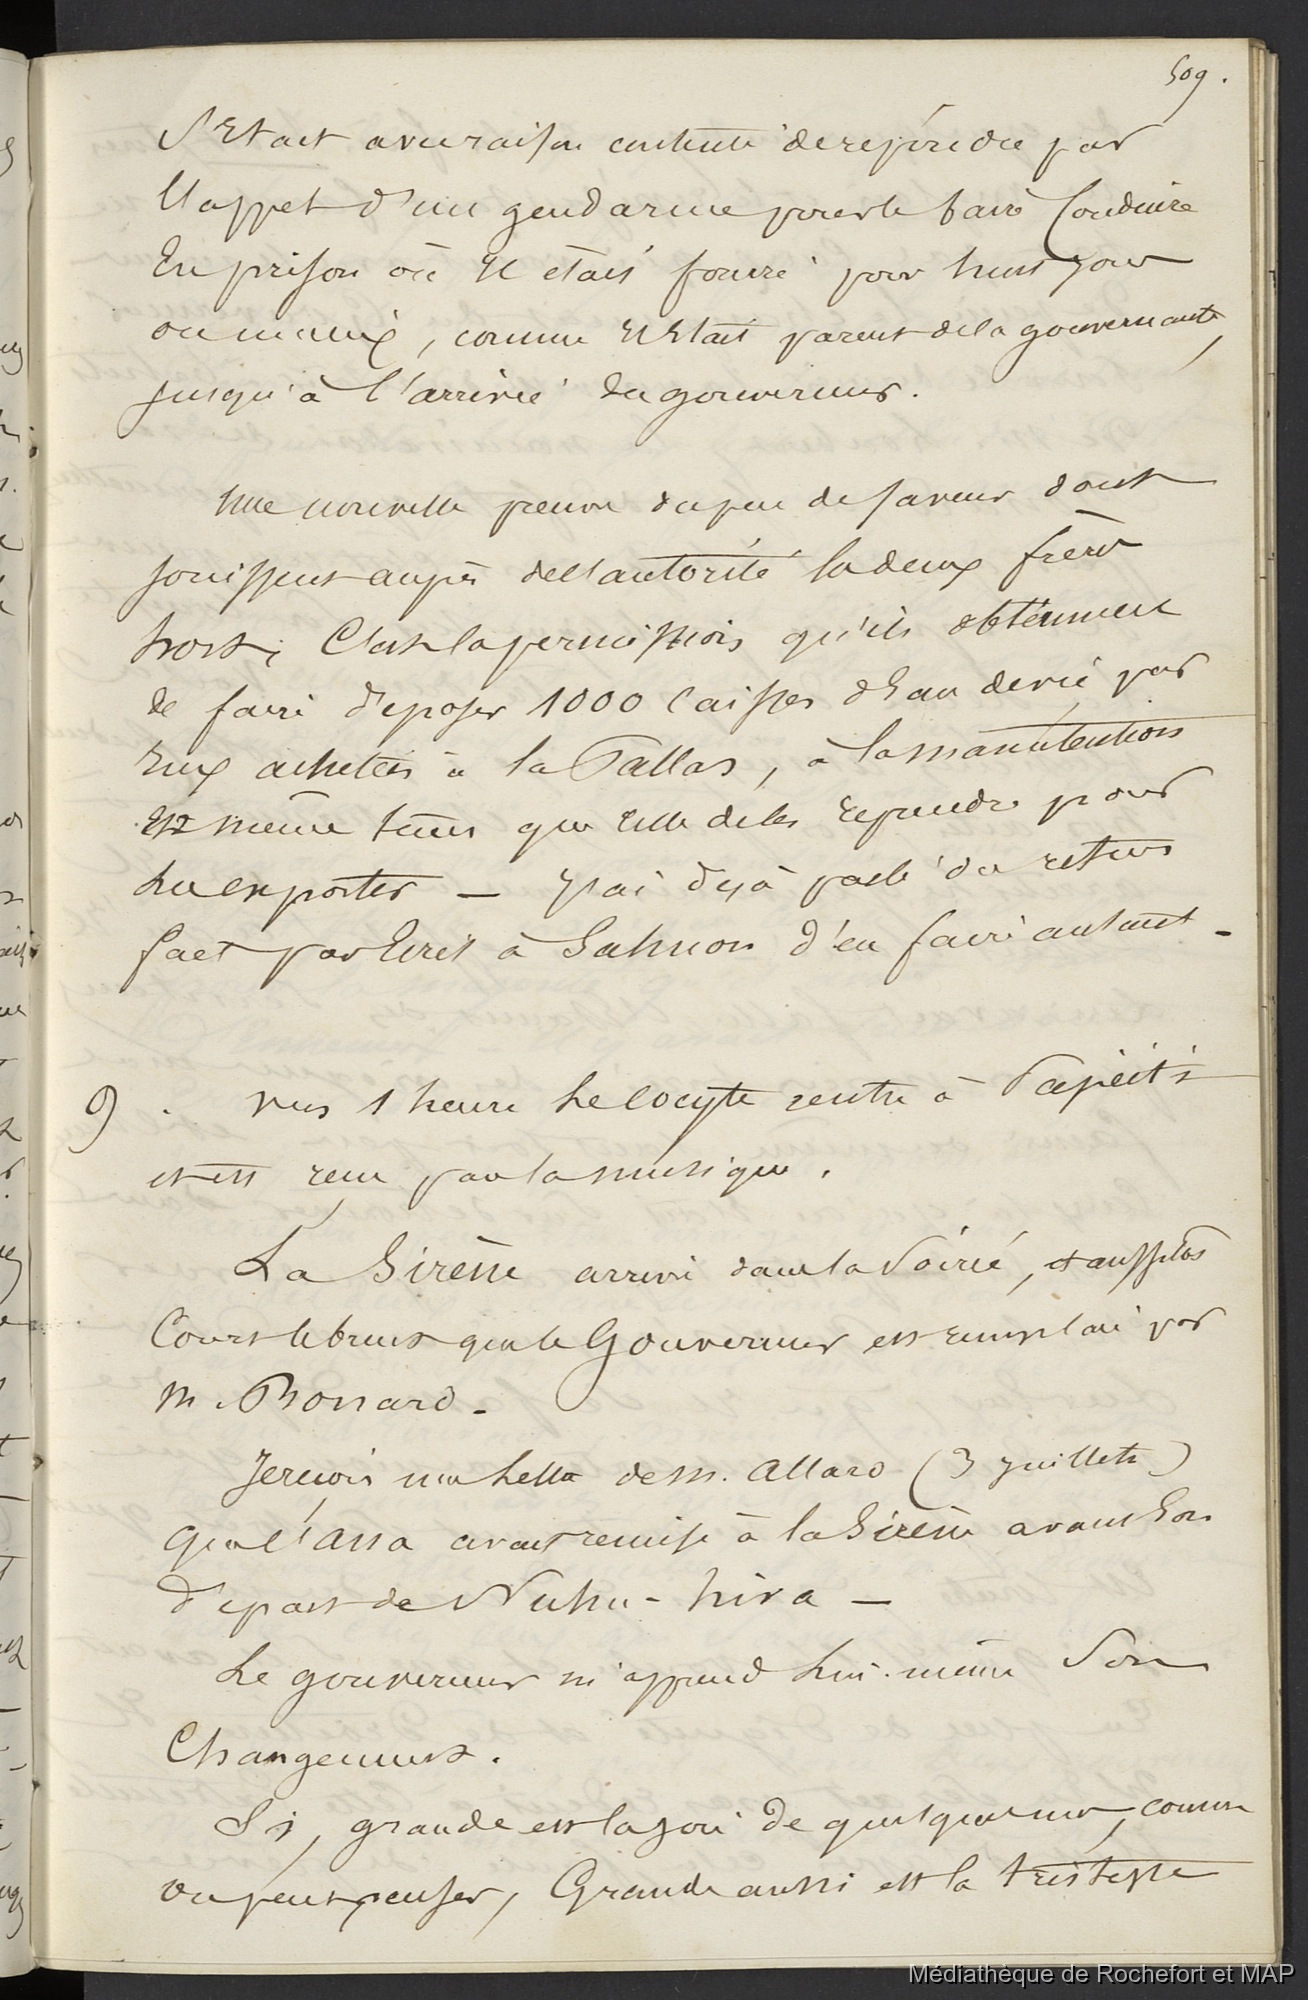 509.
S'Etait avec raison contenté de répondre par
l'appel d'un gendarme pour le faire Conduire
En prison où Il était fourré pour huit jour
ou mieux, comme Il Etait parent de la gouvernante,
jusqu'à l'arrivée du gouverneur.
Une nouvelle preuve du peu de faveur dont
jouissent auprès de l'autorité les deux frères
hort; C'est la permission qu'ils obtiennent
de faire déposer 1000 Caisses d'Eau de vie par
Eux achetées à la Pallas, à la manutention
En même tems que celle de les reprendre pour
les exporter — J'ai déjà parlé du refus
fait par Ecrit à Salmon d'en faire autant -
9. vers 1 heure Le Cocyte rentre à Papéiti
et est reçu par la musique.
La Sirène arrive dans la Soirée, et aussitôt
Court le bruit que le Gouverneur est remplacé par
M. Bonard -
Je reçois une Lettre de M. Allard (3 juillet)
que l'Assa avait remise à la Sirène avant Son
départ de Nuhu-hiva —
Le gouverneur m'apprend Lui-même Son
Changement.
Si, grande est la joie de quelques uns, comme
on peut penser, Grande aussi est la tristesse
Médiathèque de Rochefort et MAP